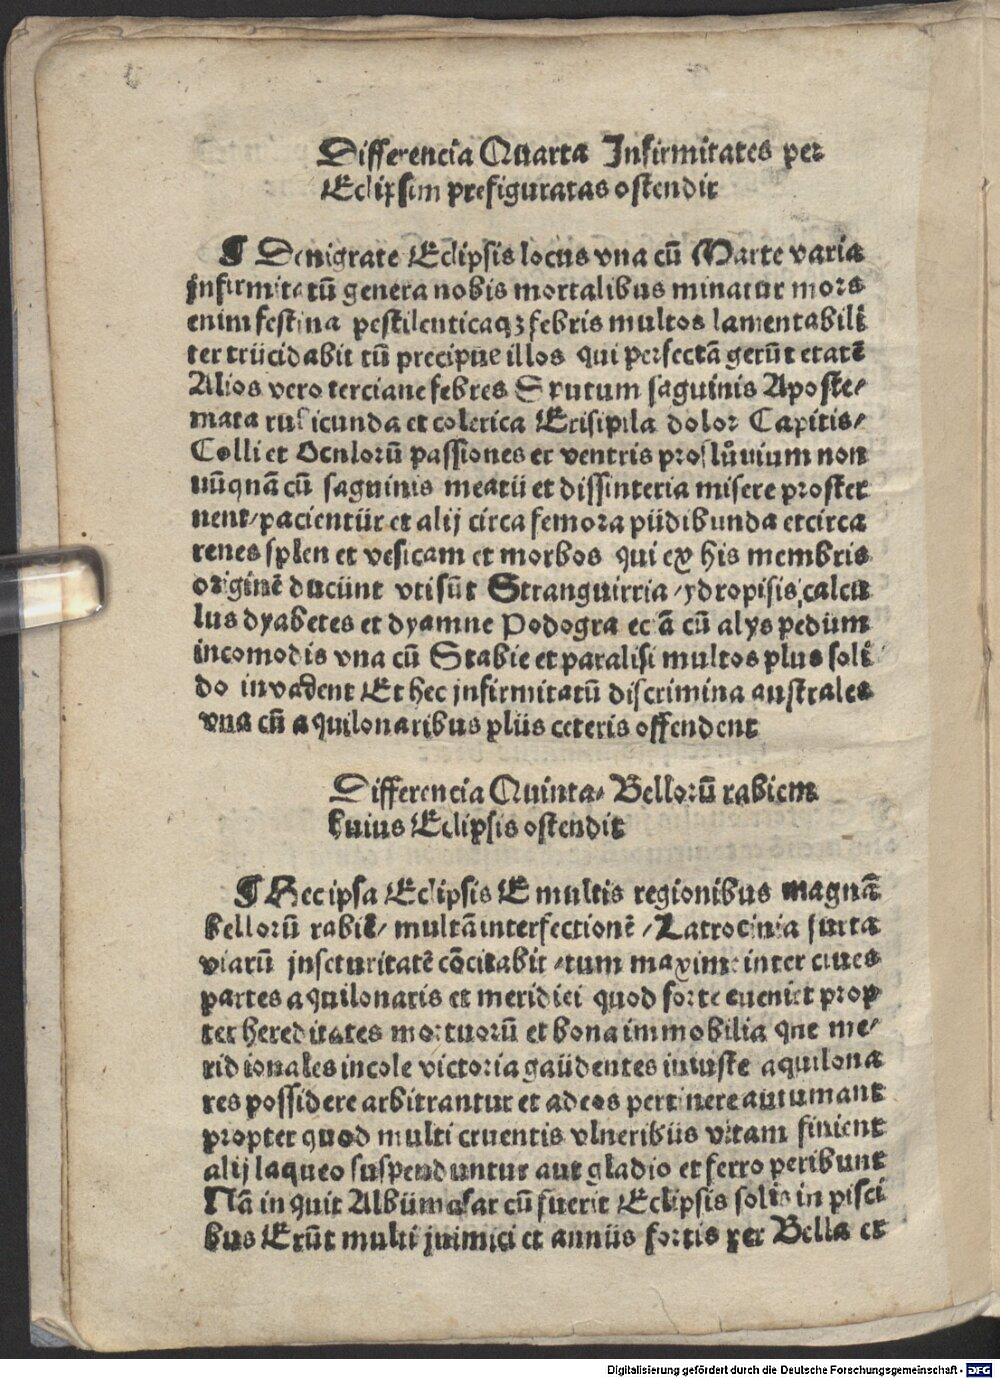 Differencia Quarta Infirmitates per
Eclipsim prefiguratas ostendit
¶ Denigrate Eclipsis locus vna cū Marte varia
jnfirmitatū genera nobis mortalibus minatur mors
enim festina pestilenticaqʒ febris multos lamentabili
ter trūcidabit tū precipue illos qui perfectā gerūt etatē
Alios vero terciane febres Sputum saguinis Aposte/
mata rubicunda et colerica Erisipila dolor Capitis/
Colli et Oculorū passiones et ventris proflůuium non
nūqnā cū saguinis meatū et dissinteria misere proster
nent/pacientūr et alij circa femora pūdibunda et circa
renes splen et vesicam et morbos qui ex his membris
originē ducūnt vti sūt Stranguirria /ydropisis calcu
lus dyabetes et dyamne Podogra ec ā cū alys pedūm
incomodis vna cū Stabie et paralisi multos plus soli
do invadent Et hec jnfirmitatū discrimina australes
vna cū aquilonaribus plūs ceteris offendent
Differencia Quinta/ Bellorū rabiem
huius Eclipsis ostendit
¶ Hec ipsa Eclipsis E multis regionibus magnā
bellorū rabiē/ multā interfectionē /Latrocinia furta
viarū jnsecuritatē cōcitabit /tum maxime inter ciues
partes aquilonaris et meridiei quod forte eueniet prop
ter hereditates mortuorū et bona immobilia que me/
ridionales incole victoria gaūdentes iniuste aquilona
res possidere arbitrantur et ad eos pertinere autumant
propter quod multi cruentis vlneribūs vitam finient
alij laqueo suspenduntur aut gladio et ferro peribunt
Nā inquit Albūmasar cū fuerit Eclipsis solis in pisci
bus Erūt multi jnimici et annūs fortis per Bella et
Digitalisierung gefördert durch die Deutsche Forschungsgemeinschaft - DFG